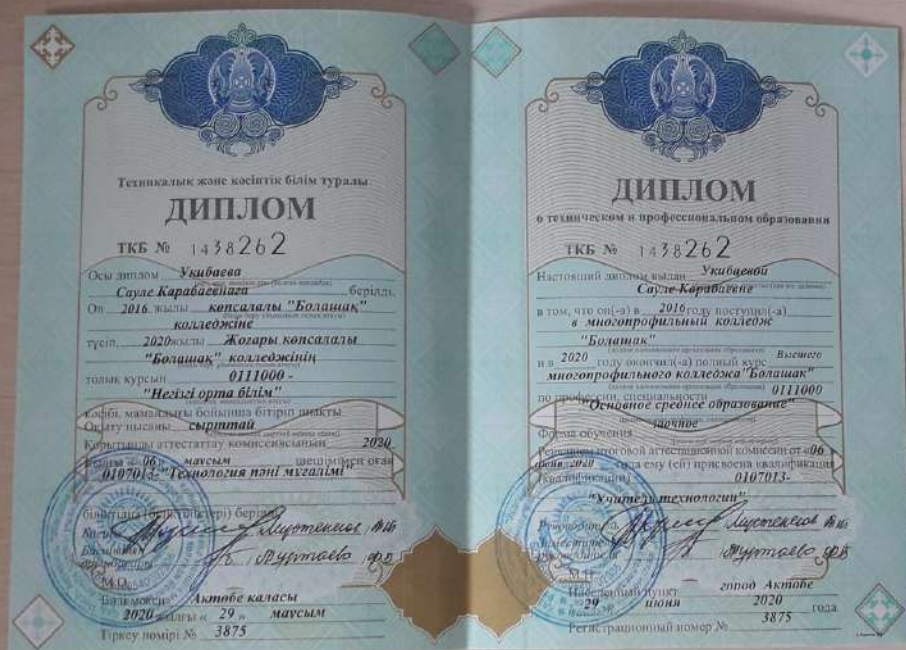 Техникалық және кәсіптік білім туралы
ДИПЛОМ
ТКБ № 1438262
Осы диплом Укибаева
Сауле Карабаевнаға берілді.
Ол 2016 жылы көпсалалы "Болашақ"
колледжіне
түсіп, 2020 жылы Жоғары көпсалалы
"Болашақ" колледжінің
толық курсын 0111000 -
"Негізгі орта білім"
кәсібі, мамандығы бойынша бітіріп шықты
Оқыту нысаны сырттай
Қорытынды аттестаттау комиссиясының 2020
жылғы « 06 » маусым шешімімен оған
0107013- "Технология пәні мұғалімі"
біліктілігі (біліктіліктері) берілді
М.О.
Елді мекен Ақтөбе қаласы
2020 жылғы « 29 » маусым
Тіркеу нөмірі № 3875
ДИПЛОМ
о техническом и профессиональном образовании
ТКБ № 1438262
Настоящий диплом выдан Укибаевой
Сауле Карабаевне
в том, что он(-а) в 2016 году поступил(-а)
в многопрофильный колледж
"Болашак"
и в 2020 году окончил(-а) полный курс Высшего
многопрофильного колледжа "Болашак"
по профессии, специальности 0111000
"Основное среднее образование"
заочное
Форма обучения
Решением итоговой аттестационной комиссии от «06
июня 2020 года ему (ей) присвоена квалификация
(квалификации) 0107013-
"Учитель технологии"
Руководитель
Заместитель
руководителя
М.П.
Населенный пункт город Актобе
« 29 июня 2020 года
Регистрационный номер № 3875